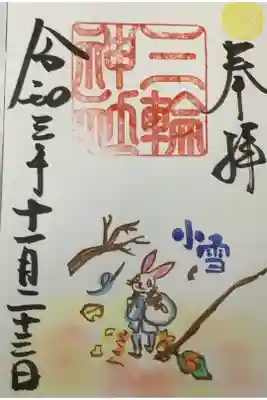 奉拝
三輪神社
小雪
令和三年十一月二十三日